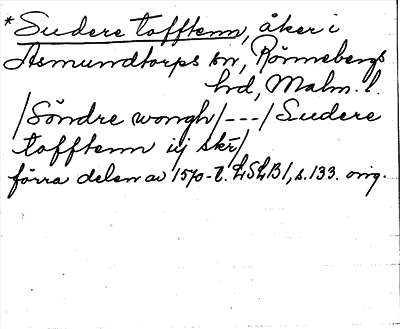 *Sudere tofftenn, åker i
Asmundtorps sn, Rönnebergs
hd, Malm. l.
/Söndre wongh/---/Sudere
tofftenn iij skr/
förra delen av 1570-t. LSLB 1, s. 133. orig.